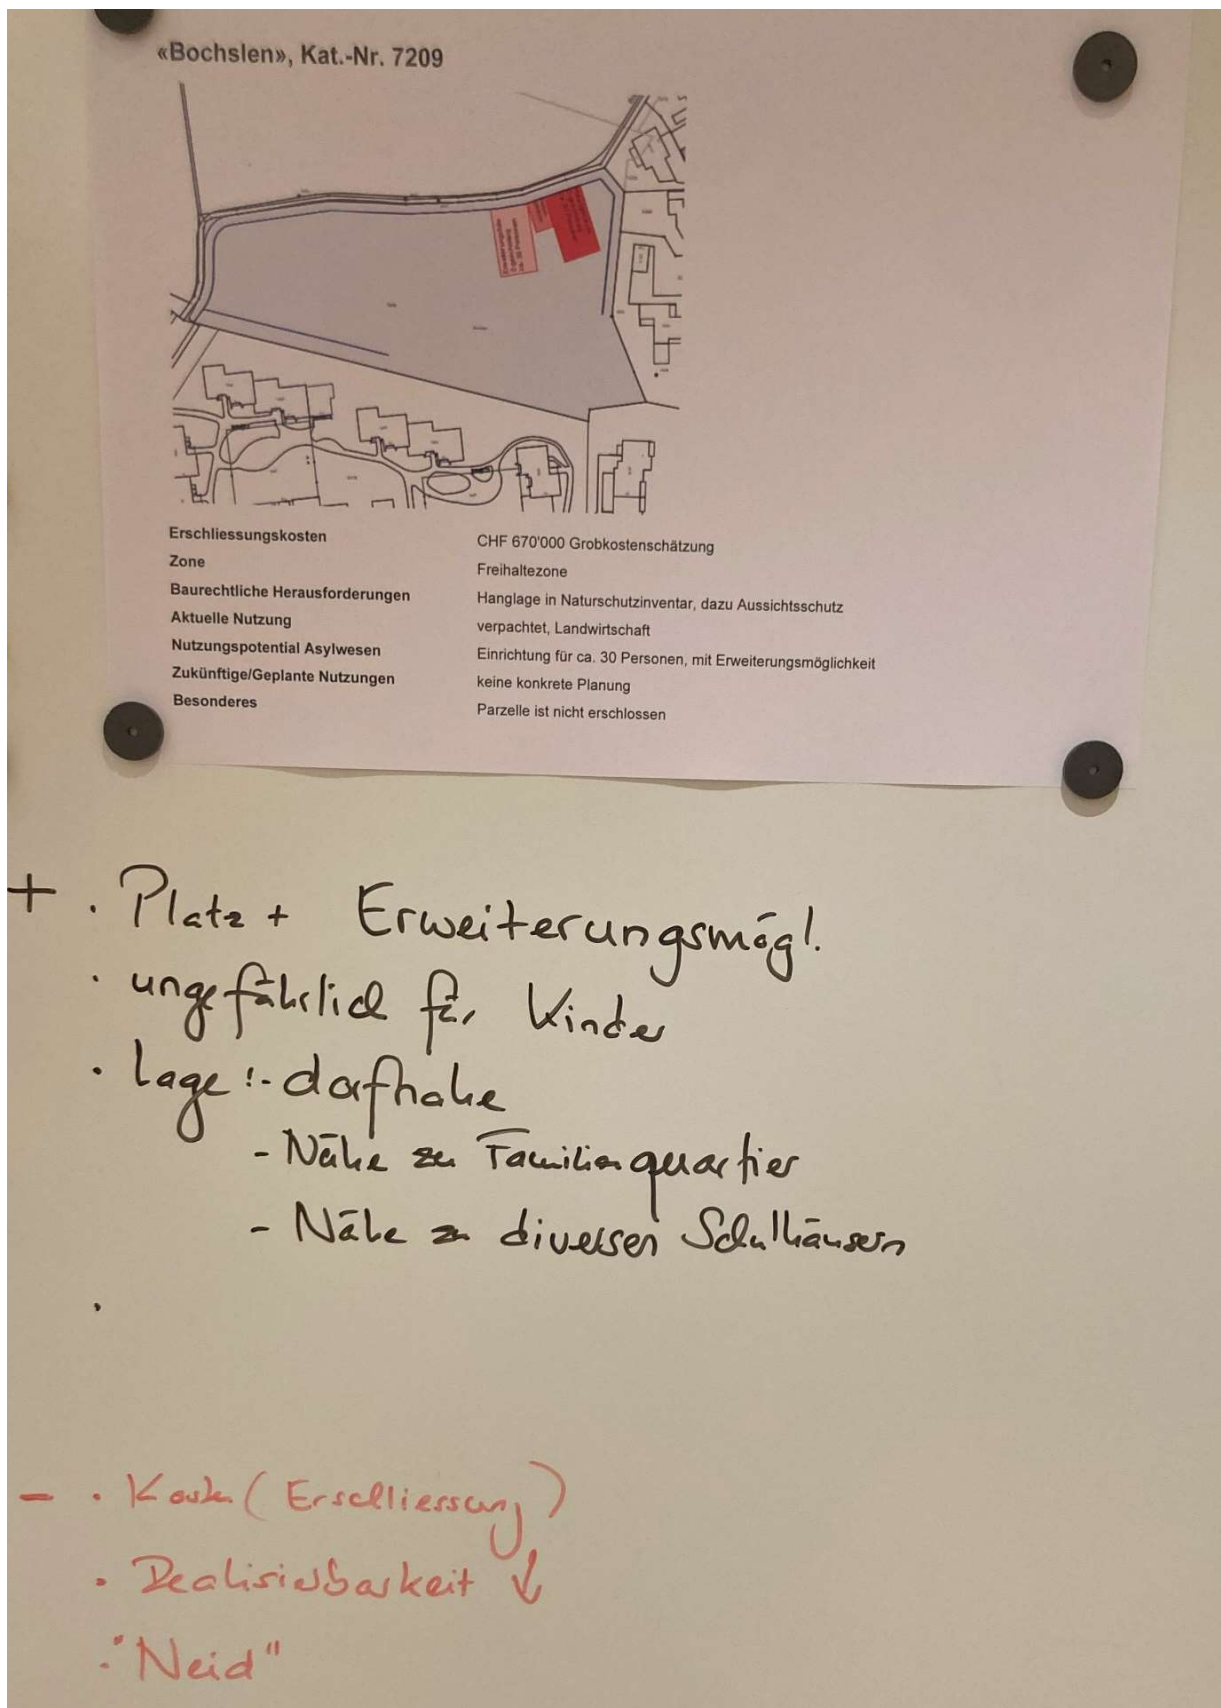 «Bochslen», Kat.-Nr. 7209
Erschliessungskosten CHF 670'000 Grobkostenschätzung
Zone Freihaltezone
Baurechtliche Herausforderungen Hanglage in Naturschutzinventar, dazu Aussichtsschutz
Aktuelle Nutzung verpachtet, Landwirtschaft
Nutzungspotential Asylwesen Einrichtung für ca. 30 Personen, mit Erweiterungsmöglichkeit
Zukünftige/Geplante Nutzungen keine konkrete Planung
Besonderes Parzelle ist nicht erschlossen
+ · Platz + Erweiterungsmögl.
· ungefährlich für Kinder
· Lage: - dorfnahe
- Nähe zu Familienquartier
- Nähe zu diversen Schulhäusern
·
- · Kosten (Erschliessung)
· Realisierbarkeit ↓
· "Neid"